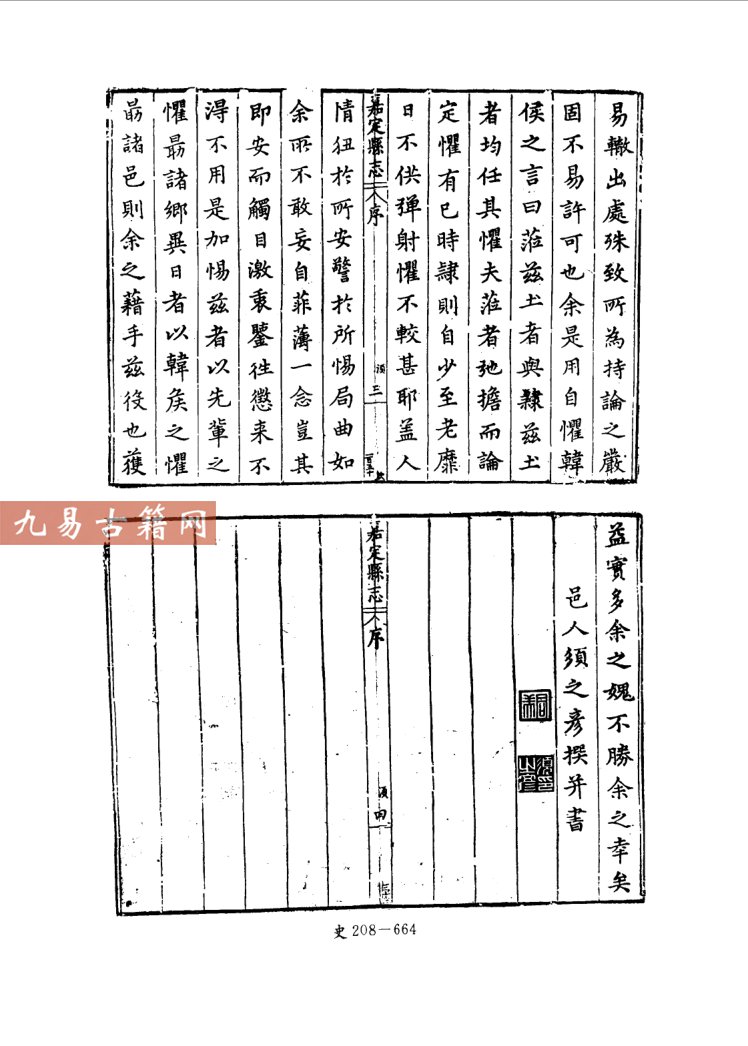 易轍出處殊致所為持論之嚴
固不易許可也余是用自懼韓
侯之言曰蒞茲土者與隸茲土
者均任其懼夫蒞者弛擔而論
定懼有已時隸則自少至老靡
日不供彈射懼不較甚耶蓋人
嘉定縣志
序
須 三
情狃於所安警於所惕局曲如
余所不敢妄自菲薄一念豈其
即安而觸目激衷鑒往懲來不
得不用是加惕茲者以先輩之
懼勗諸鄉異日者以韓侯之懼
勗諸邑則余之藉手茲役也獲
九易古籍网
益實多余之媿不勝余之幸矣
邑人須之彥撰并書
嘉定縣志
序
須 四
史 208－664